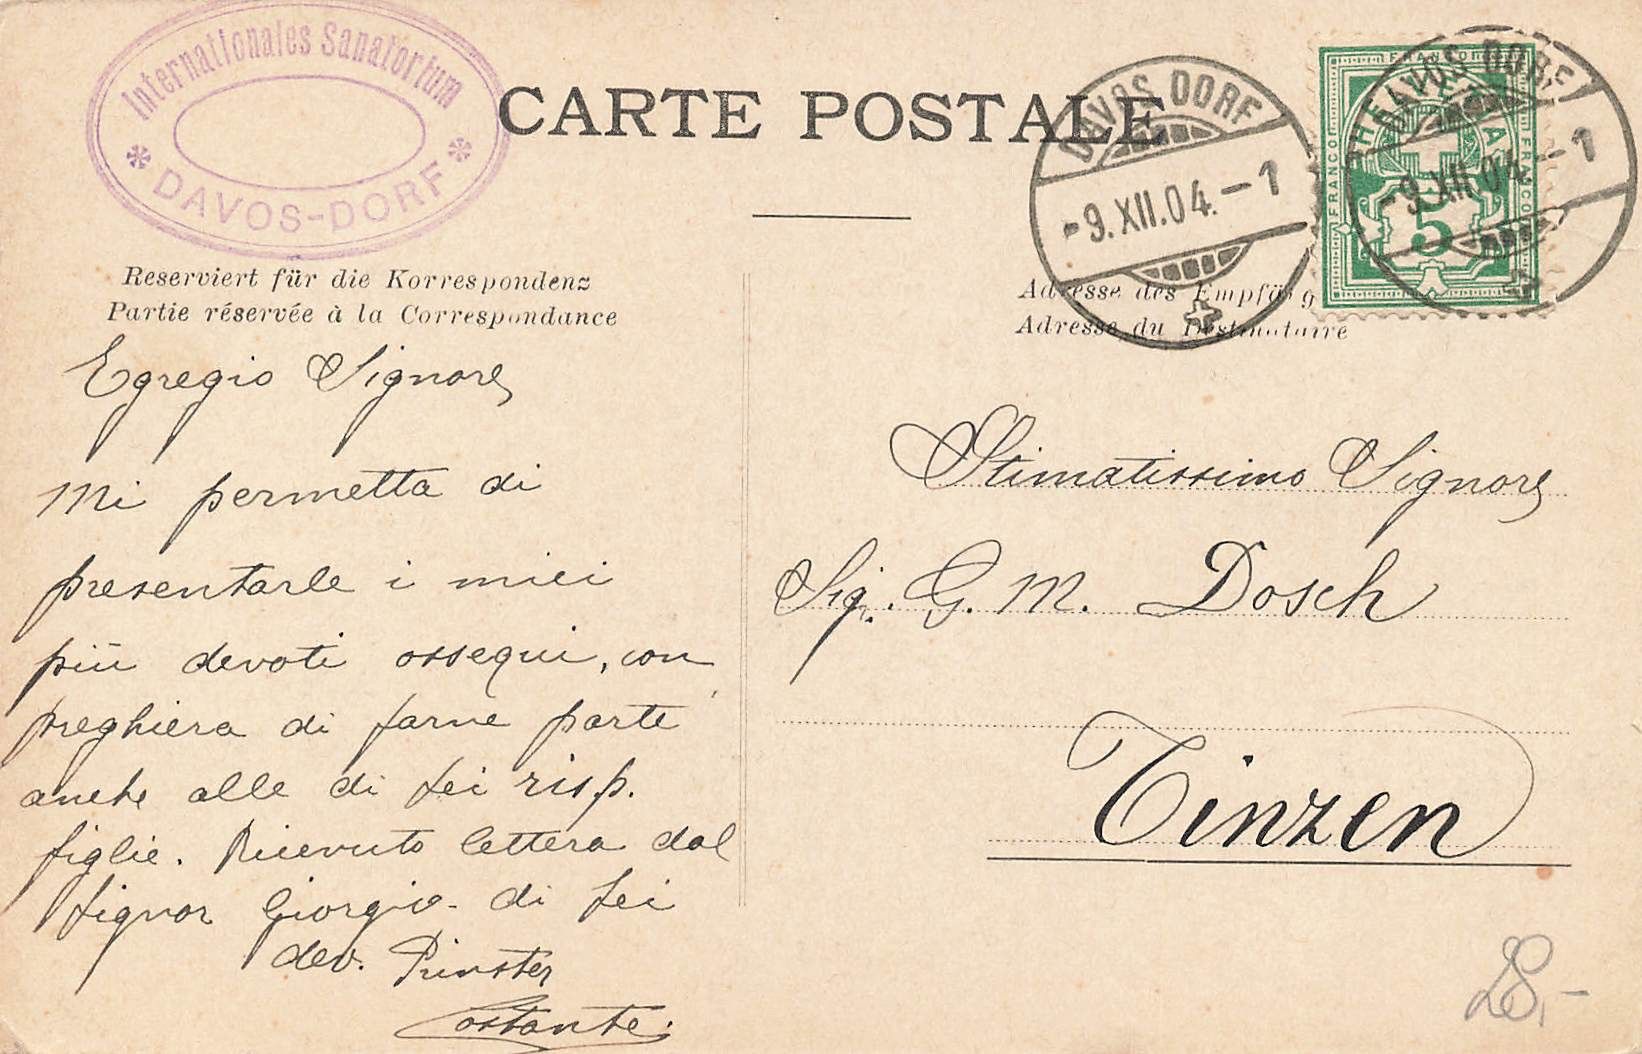 Internationales Sanatorium
* DAVOS-DORF *
CARTE POSTALE
DAVOS DORF
-9.XII.04.-1
DAVOS DORF
-9.XII.04.-1
FRANCO
5
Reserviert für die Korrespondenz
Partie réservée à la Correspondance
Adresse des Empfäng
Adresse du Destinataire
Egregio Signore
Mi permetta di
presentarle i miei
più devoti ossequi, con
preghiera di farne parte
anche alle di Lei risp.
figlie. Ricevuto lettera dal
Signor Giorgio. di Lei
dev. Prinster
Costante.
Stimatissimo Signore
Sig. G. M. Dosch
Tinzen
28,-